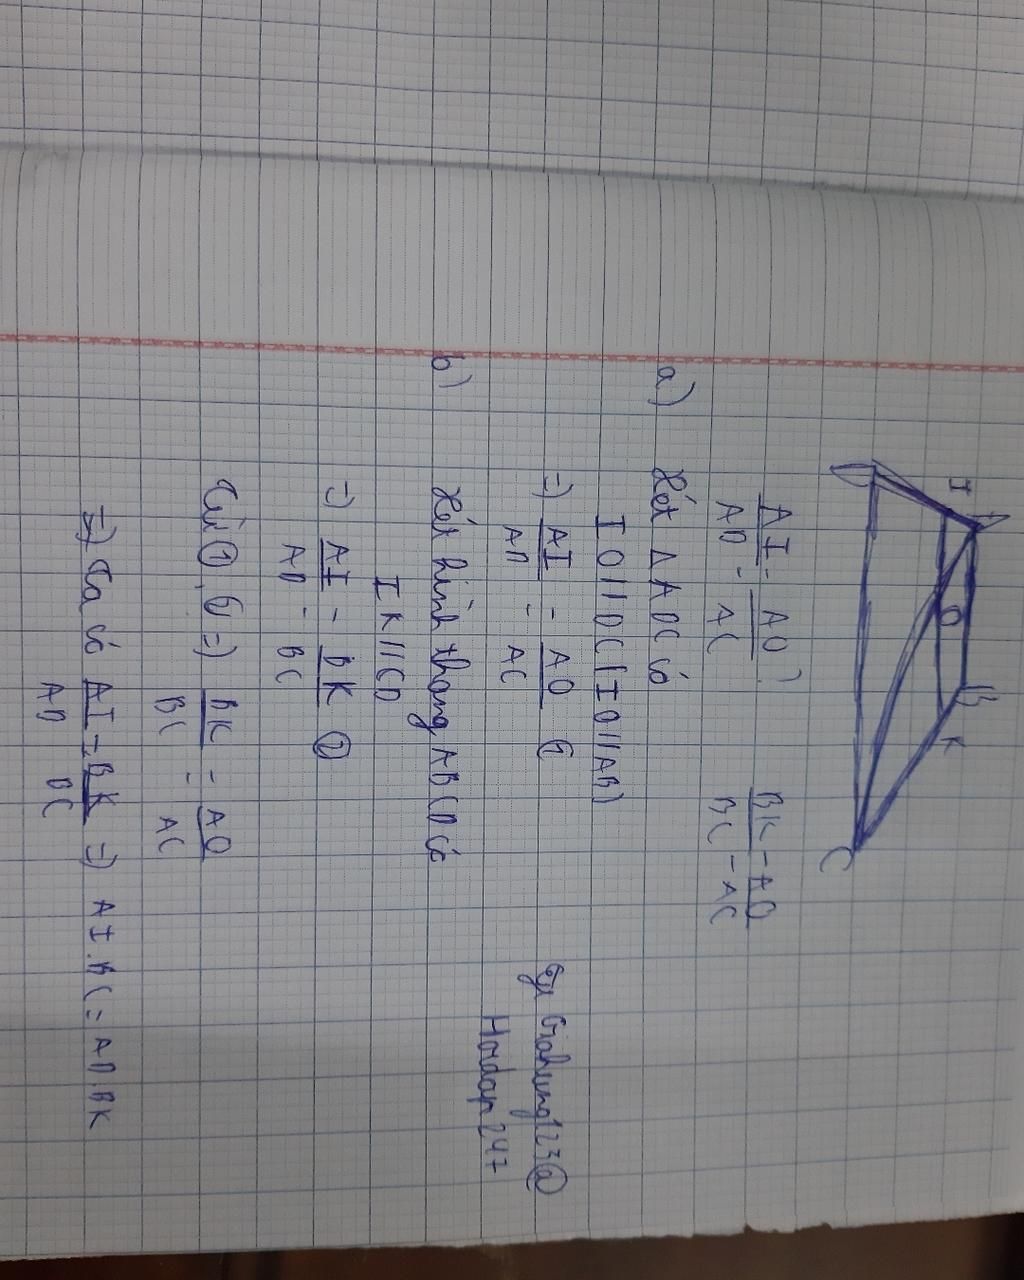 A
B
I
O
K
D
C
AI/AD = AO/AC ?
BK/BC = AO/AC
a) Xét Δ ADC có
IO // DC (IO // AB)
=) AI/AD = AO/AC ①
b) Xét hình thang ABCD có
IK // CD
=) AI/AD = BK/BC ②
Từ ①, ② =) BK/BC = AO/AC
=) Ta có AI/AD = BK/BC =) AI.BC = AD.BK
By Giahung123@
Hoidap247